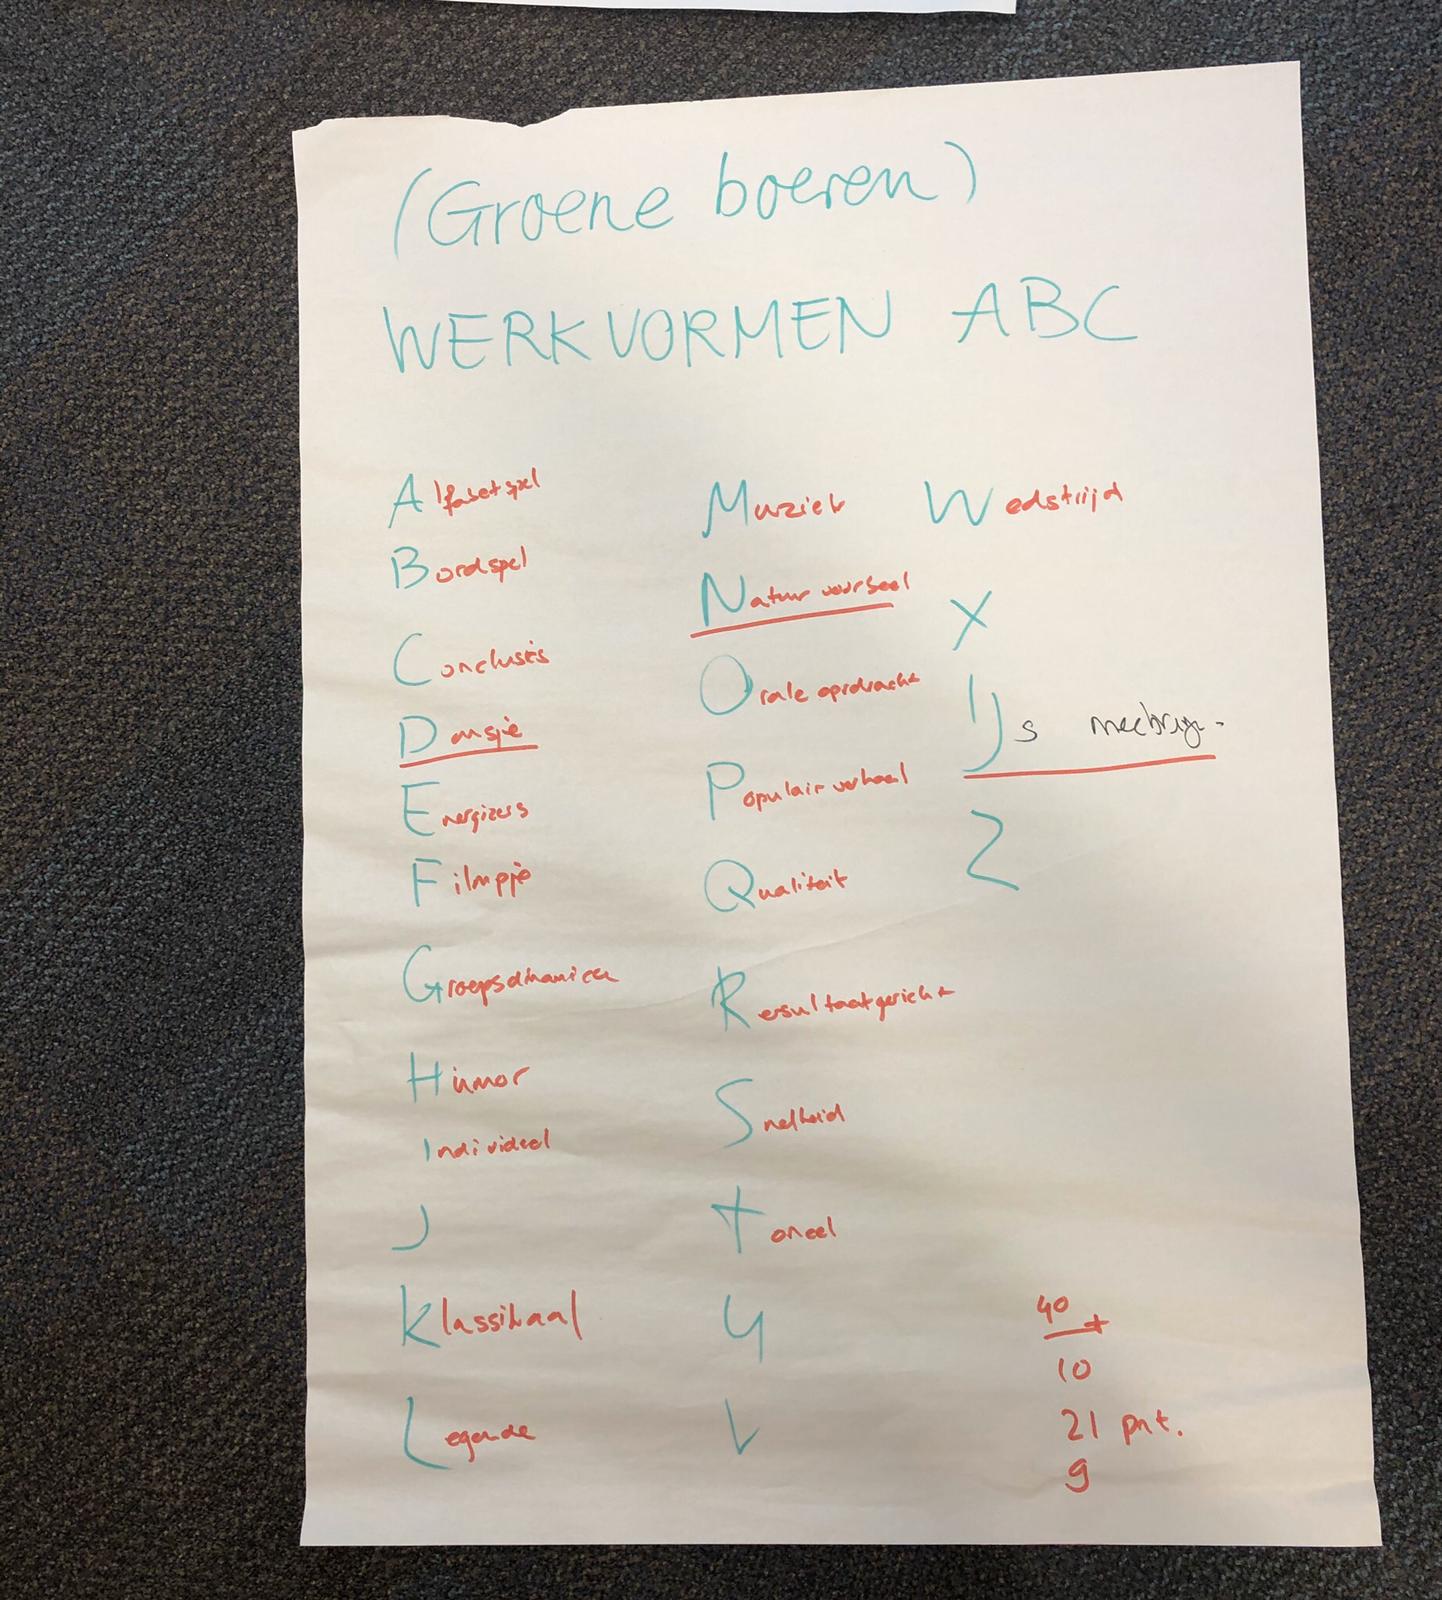 (Groene boeren)
WERKVORMEN ABC
Alfabetspel
Bordspel
Conclusies
Dansje
Energizers
Filmpje
Groepsdinamica
Humor
Individeel
J
Klassikaal
Legende
Muziek
Natuur voorbeel
Orale opdracht
Populair verhaal
Qualiteit
Resultaatgericht
Snelheid
Toneel
U
V
Wedstrijd
X
IJs meebrg.
Z
40 +
10
21 pnt.
9